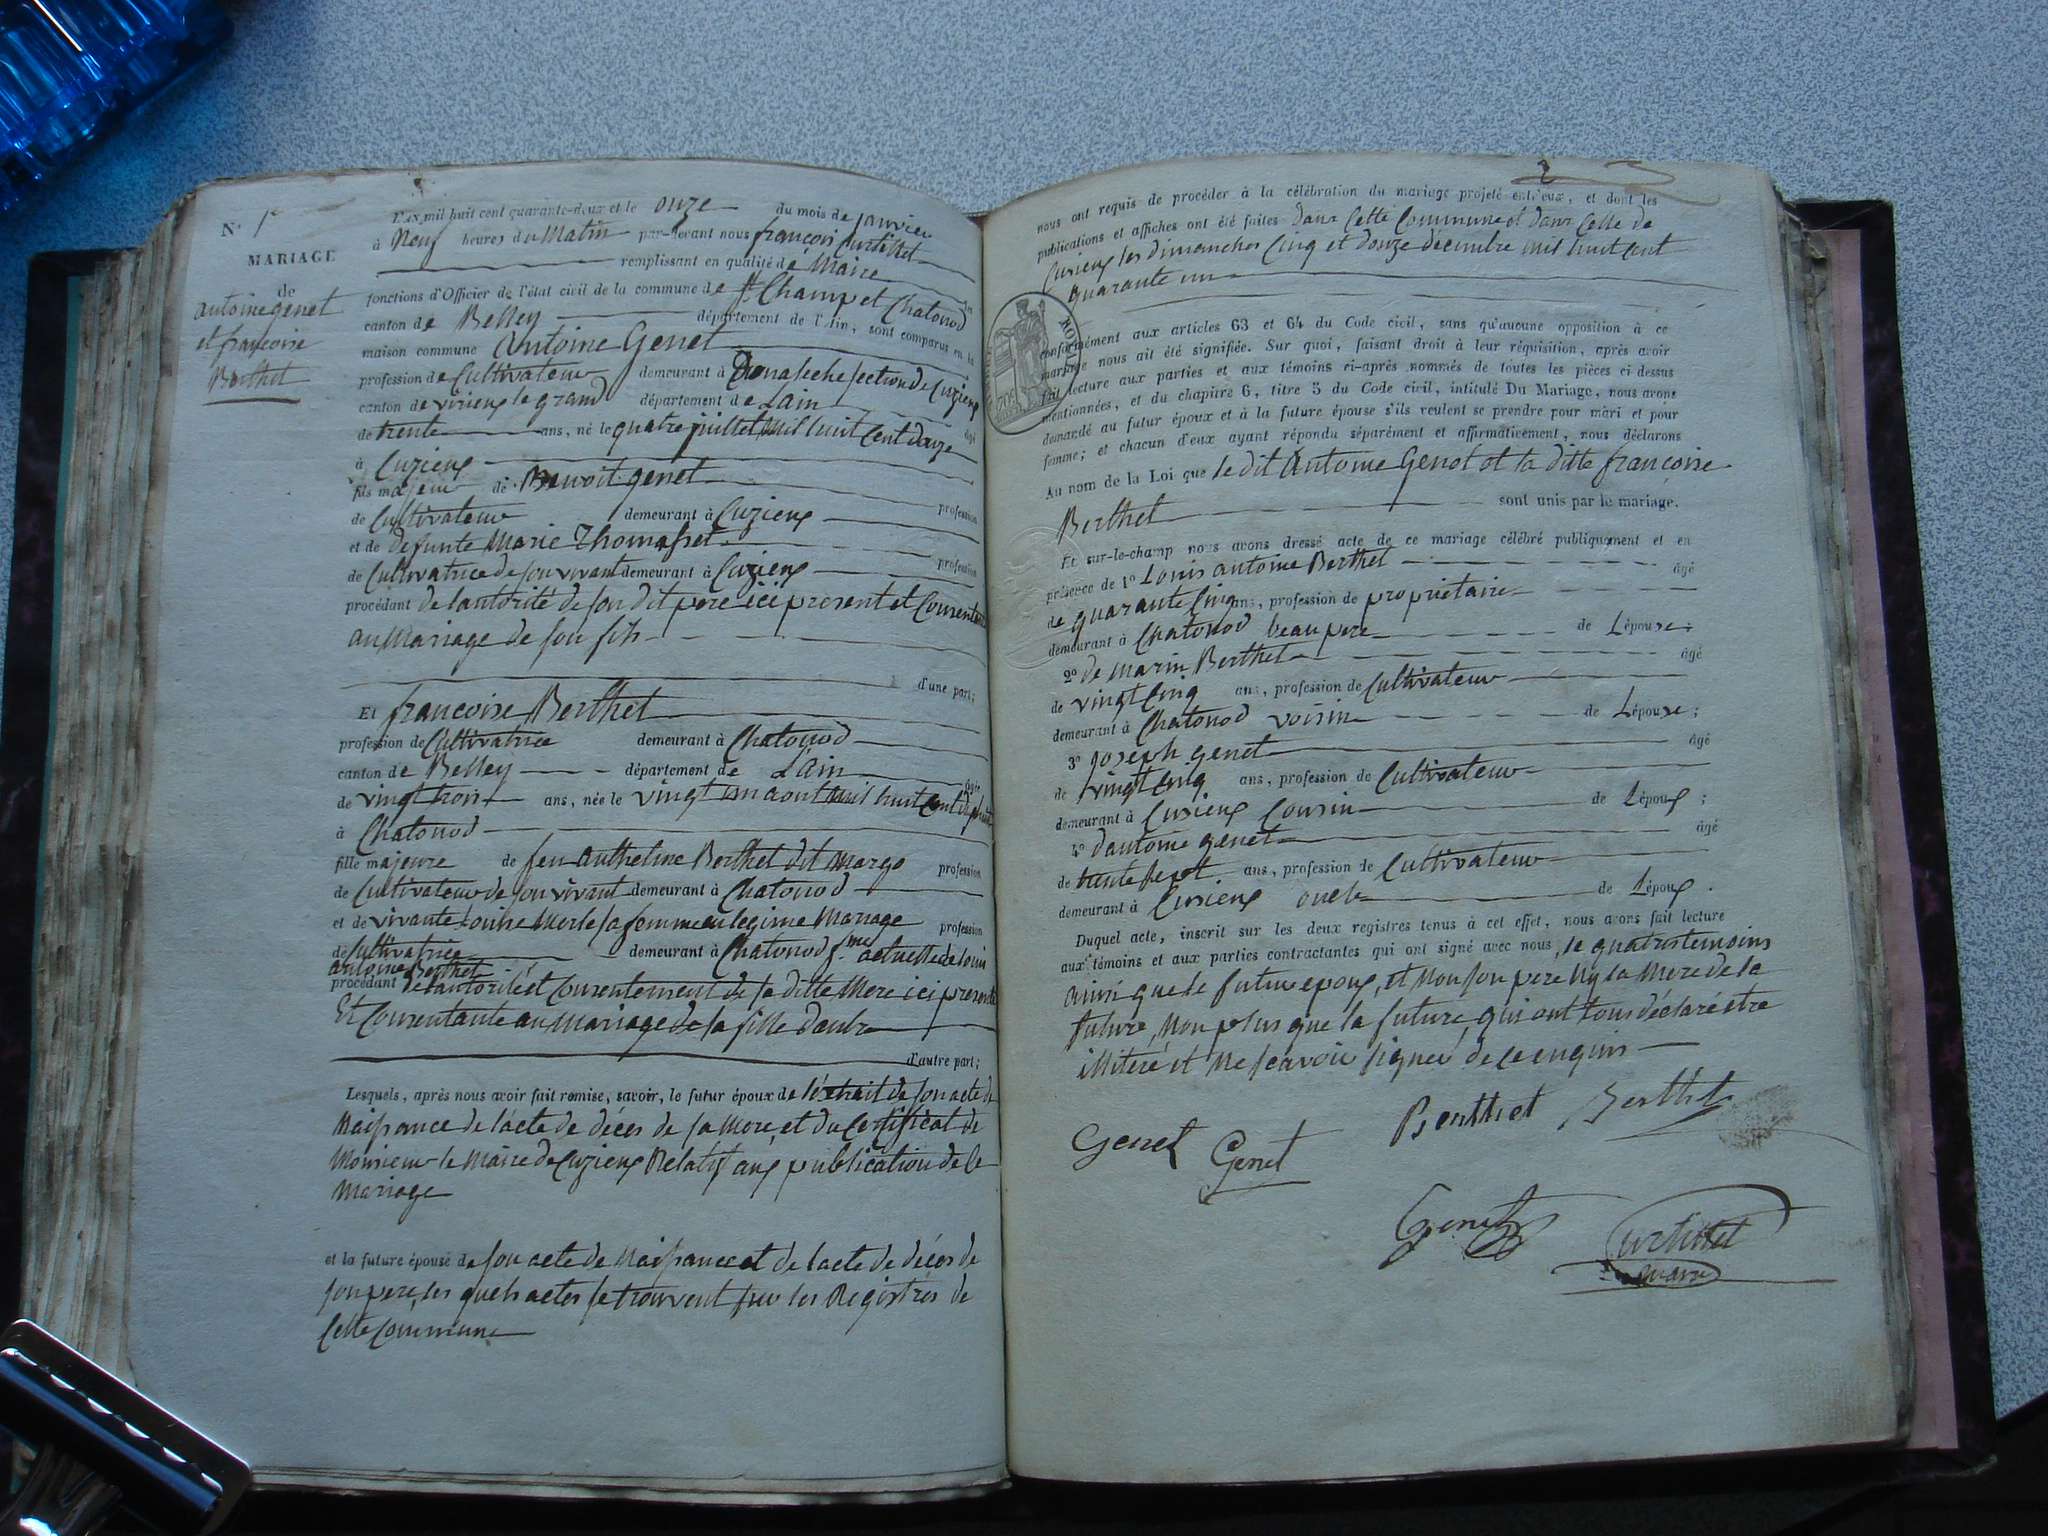 N° 1er
MARIAGE
de
antoine genet
et françoise
Berthet
L'AN mil huit cent quarante-deux et le onze du mois de janvier
à Neuf heures du Matin par-devant nous françois Curtillet
remplissant en qualité de Maire les
fonctions d'Officier de l'état civil de la commune de St Champ et Chatonod
canton de Belley département de l'Ain, sont comparus en la
maison commune Antoine Genet
profession de Cultivateur demeurant à section de Cuzieux
canton de virieux le grand département de Lain âgé
de trente ans, né le quatre juillet Mil huit Cent douze
à Cuzieux
fils majeur de Benoit genet profession
de Cultivateur demeurant à Cuzieux
et de defunte Marie Thomasset profession
de Cultivatrice de son vivant demeurant à Cuzieux
procédant de l'autorité de son dit pere ici present et Consentant
au Mariage de son fils
d'une part;
Et françoise Berthet
profession de Cultivatrice demeurant à Chatonod
canton de Belley département de Lain âgée
de vingt trois ans, née le vingt un aout mil huit cent dix huit
à Chatonod
fille majeure de feu Anthelme Berthet dit Margo profession
de Cultivateur de son vivant demeurant à Chatonod
et de vivante Louise Merle sa femme en legime Mariage profession
de Cultivatrice demeurant à Chatonod fme actuelle de Louis
antoine Berthet
procédant de l'autorité et Consentement de sa ditte Mere ici presente
Et Consentante au Mariage de sa fille dautre
d'autre part;
Lesquels, après nous avoir fait remise, savoir, le futur époux de l'éxtrait de son acte de
Naissance de l'acte de décès de sa Mere, et du Certificat de
Monsieur le Maire de Cuzieux Relatif aux publication de le
Mariage
et la future épouse de son acte de Naissance et de l'acte de décès de
son pere, les quels actes se trouvent sur les Registres de
Cette Commune
2
nous ont requis de procéder à la célébration du mariage projeté entr'eux, et dont les
publications et affiches ont été faites dans Cette Commune et dans Celle de
Cuzieux les dimanches Cinq et douze décembre mil huit cent
quarante un
conformément aux articles 63 et 64 du Code civil, sans qu'aucune opposition à ce
mariage nous ait été signifiée. Sur quoi, faisant droit à leur réquisition, après avoir
fait lecture aux parties et aux témoins ci-après nommés de toutes les pièces ci-dessus
mentionnées, et du chapitre 6, titre 5 du Code civil, intitulé Du Mariage, nous avons
demandé au futur époux et à la future épouse s'ils veulent se prendre pour mari et pour
femme; et chacun d'eux ayant répondu séparément et affirmativement, nous déclarons
Au nom de la Loi que le dit Antoine Genet et la ditte françoise
Berthet sont unis par le mariage.
Et sur-le-champ nous avons dressé acte de ce mariage célébré publiquement et en
présence de 1° Louis antoine Berthet âgé
de quarante Cinq ans, profession de propriétaire
demeurant à Chatonod beau pere de Lépouse;
2° de Marin Berthet âgé
de vingt Cinq ans, profession de Cultivateur
demeurant à Chatonod voisin de Lépouse;
3° joseph genet âgé
de vingt Cinq ans, profession de Cultivateur
demeurant à Cuzieux Cousin de Lépoux;
4° dantoine genet âgé
de trente sept ans, profession de Cultivateur
demeurant à Cuzieux oncle de Lépoux.
Duquel acte, inscrit sur les deux registres tenus à cet effet, nous avons fait lecture
aux témoins et aux parties contractantes qui ont signé avec nous, le quatres temoins
ainsi que le futur epoux, et Non son pere Ny la Mere de la
future, Non plus que la future, qui ont tous déclaré etre
illiteré et Ne scavoir signer de ce enquis
Genet Genet Berthet Berthet
Genet Curtillet
maire